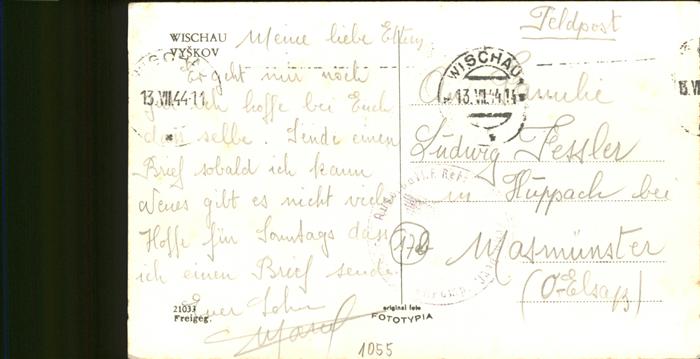 WISCHAU
VYŠKOV
Meine liebe Eltern
Es geht mir noch
gut ich hoffe bei Euch
das selbe. Sende einen
Brief sobald ich kann
Neues gibt es nicht viel
Hoffe für Sonntags dass
ich einen Brief sende
Euer Sohn
Marcel
21033
Freigeg.
original foto
FOTOTYPIA
1055
Feldpost
WISCHAU
13.VII.44.11
WISCHAU
13.VII.44.14
An Familie
Ludwig Fessler
in Hüppach bei
Masmünster
(O-Elsaß)
17b